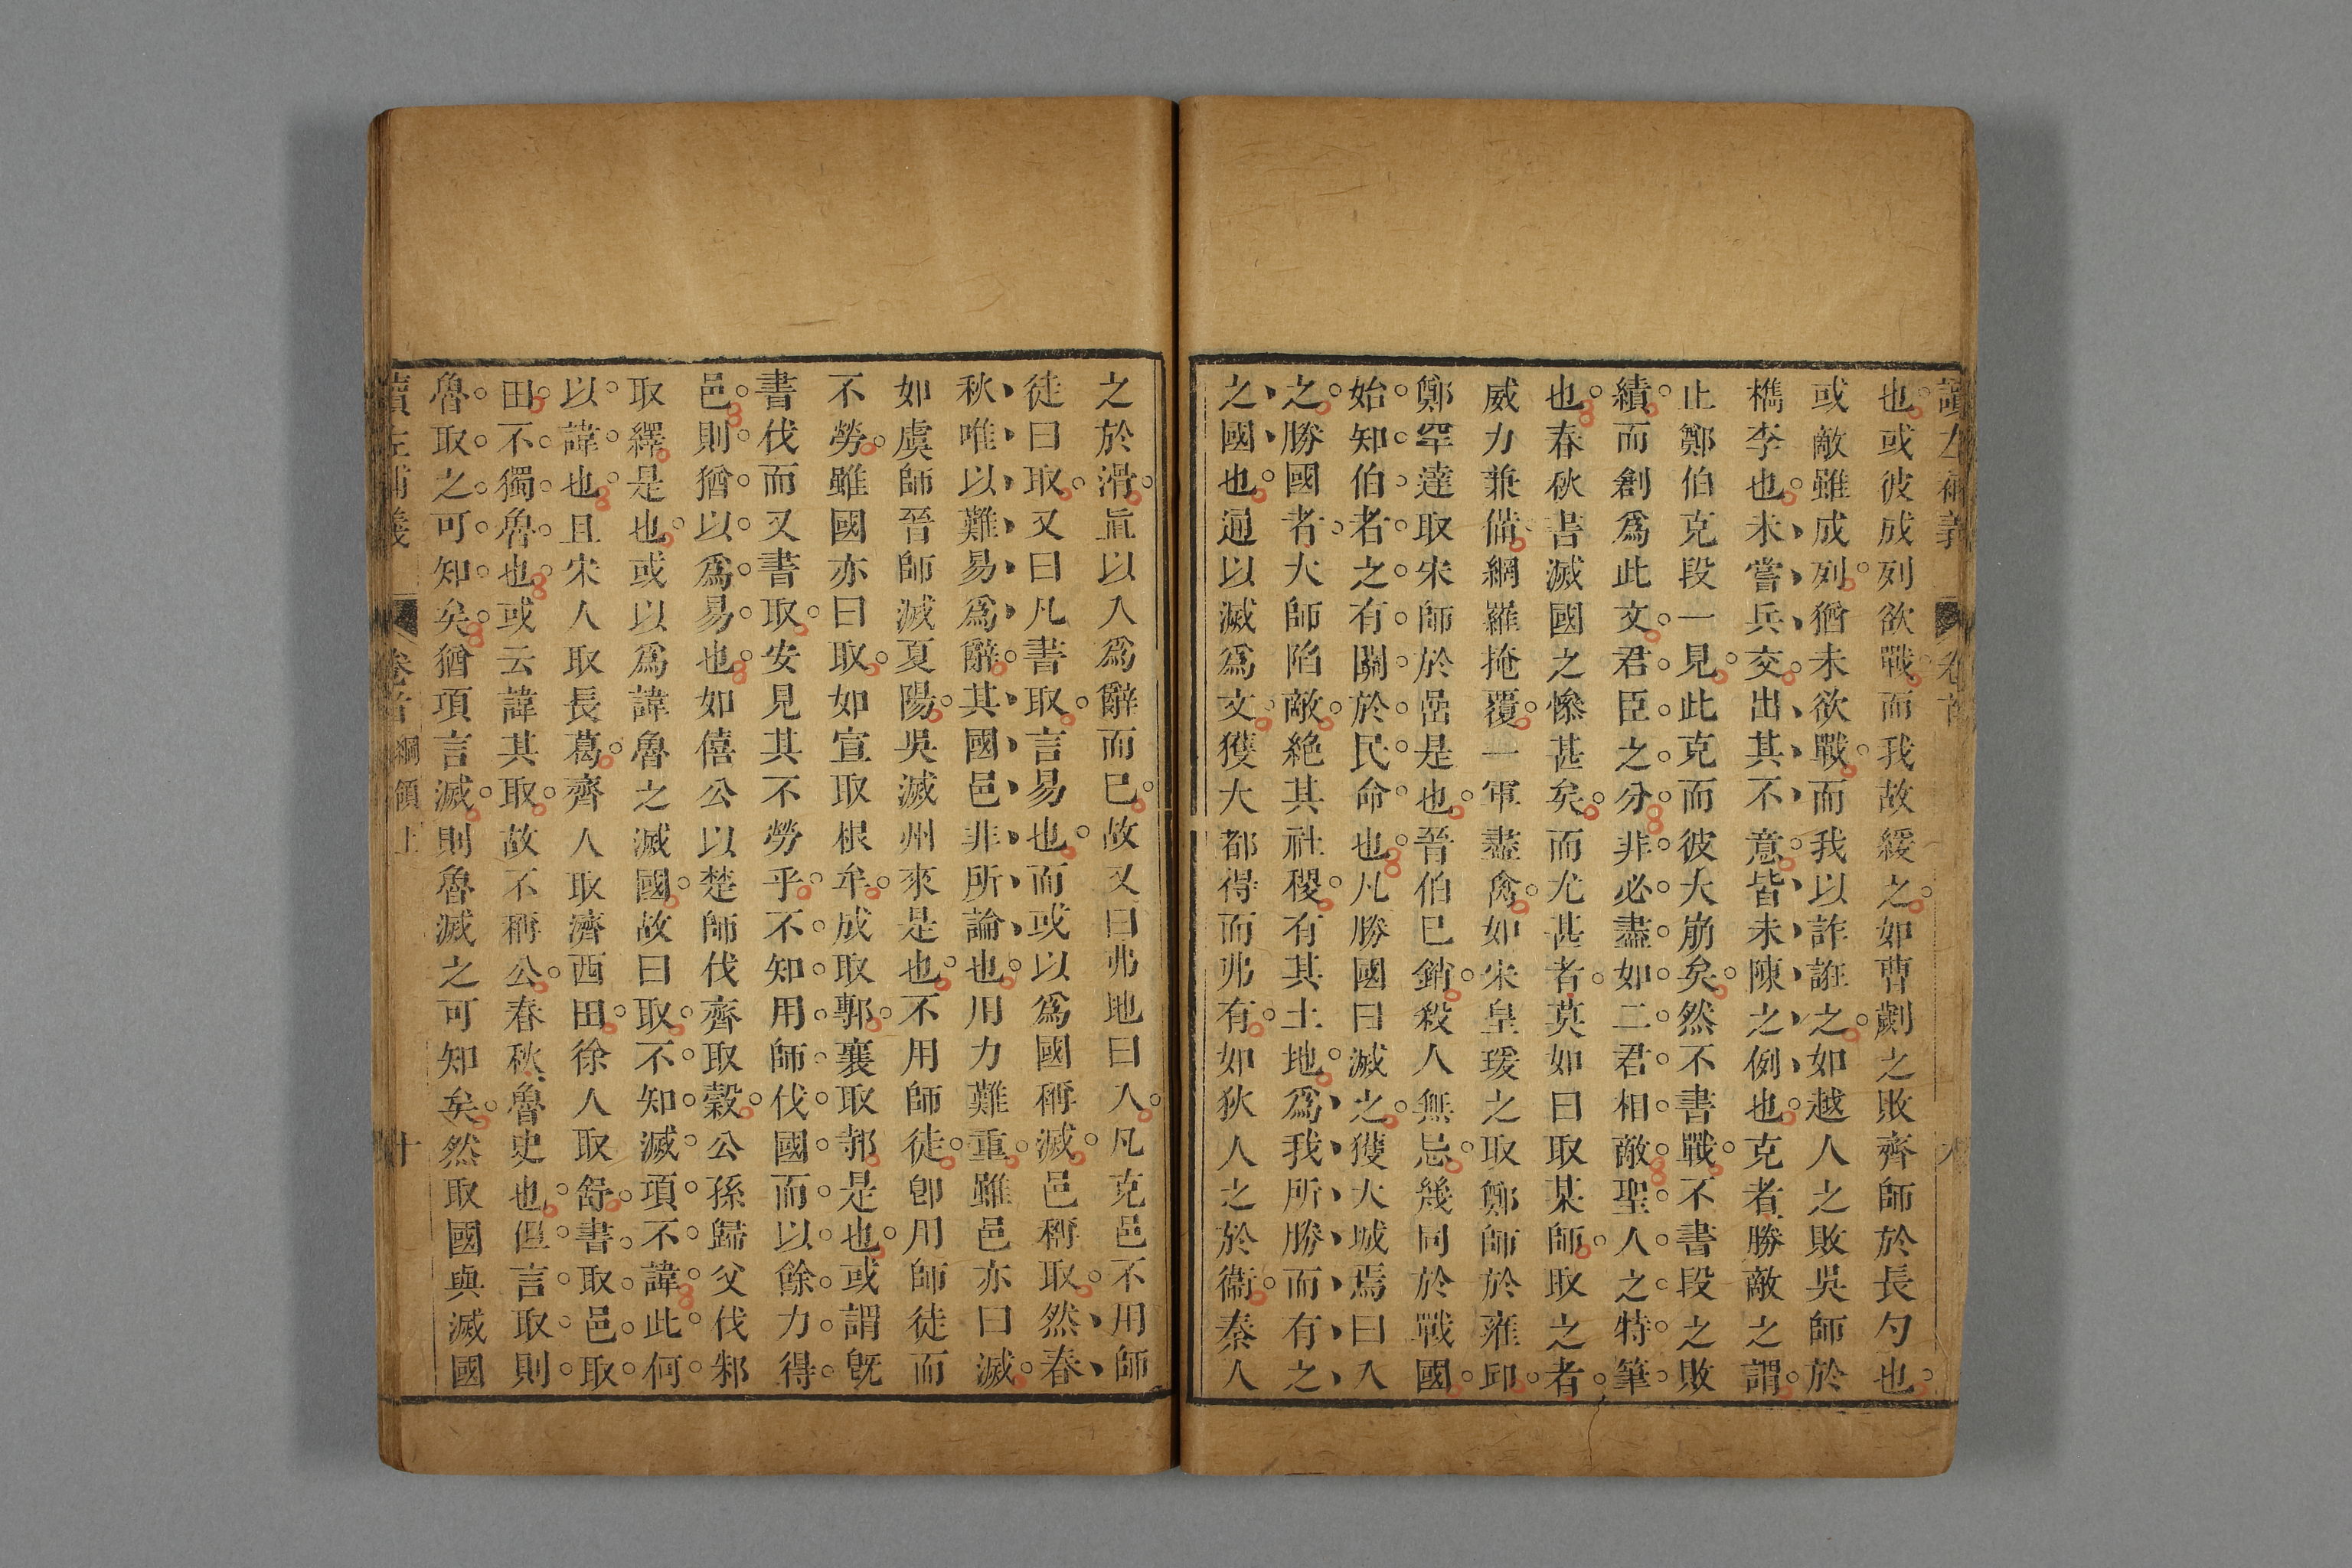 讀左補義 卷首
也或彼成列欲戰而我故緩之如曹劌之敗齊師於長勺也
或敵雖成列猶未欲戰而我以詐誑之如越人之敗吳師於
檇李也未嘗兵交出其不意皆未陳之例也克者勝敵之謂
止鄭伯克段一見此克而彼大崩矣然不書戰不書段之敗
績而創爲此文君臣之分非必盡如二君相敵聖人之特筆
也春秋書滅國之慘甚矣而尤甚者莫如曰取某師取之者
威力兼備網羅掩覆一軍盡禽如宋皇瑗之取鄭師於雍邱
鄭罕達取宋師於嵒是也晉伯巳銷殺人無忌幾同於戰國
始知伯者之有關於民命也凡勝國曰滅之獲大城焉曰入
之勝國者大師陷敵絶其社稷有其土地爲我所勝而有之
之國也通以滅爲文獲大都得而弗有如狄人之於衞秦人
之於滑直以入爲辭而巳故又曰弗地曰入凡克邑不用師
徒曰取又曰凡書取言易也而或以爲國稱滅邑稱取然春
秋唯以難易爲辭其國邑非所論也用力難重雖邑亦曰滅
如虞師晉師滅夏陽吳滅州來是也不用師徒卽用師徒而
不勞雖國亦曰取如宣取根牟成取鄟襄取邿是也或謂旣
書伐而又書取安見其不勞乎不知用師伐國而以餘力得
邑則猶以爲易也如僖公以楚師伐齊取穀公孫歸父伐邾
取繹是也或以爲諱魯之滅國故曰取不知滅項不諱此何
以諱也且宋人取長葛齊人取濟西田徐人取舒書取邑取
田不獨魯也或云諱其取故不稱公春秋魯史也但言取則
魯取之可知矣猶項言滅則魯滅之可知矣然取國與滅國
讀左補義 卷首 綱領上 十